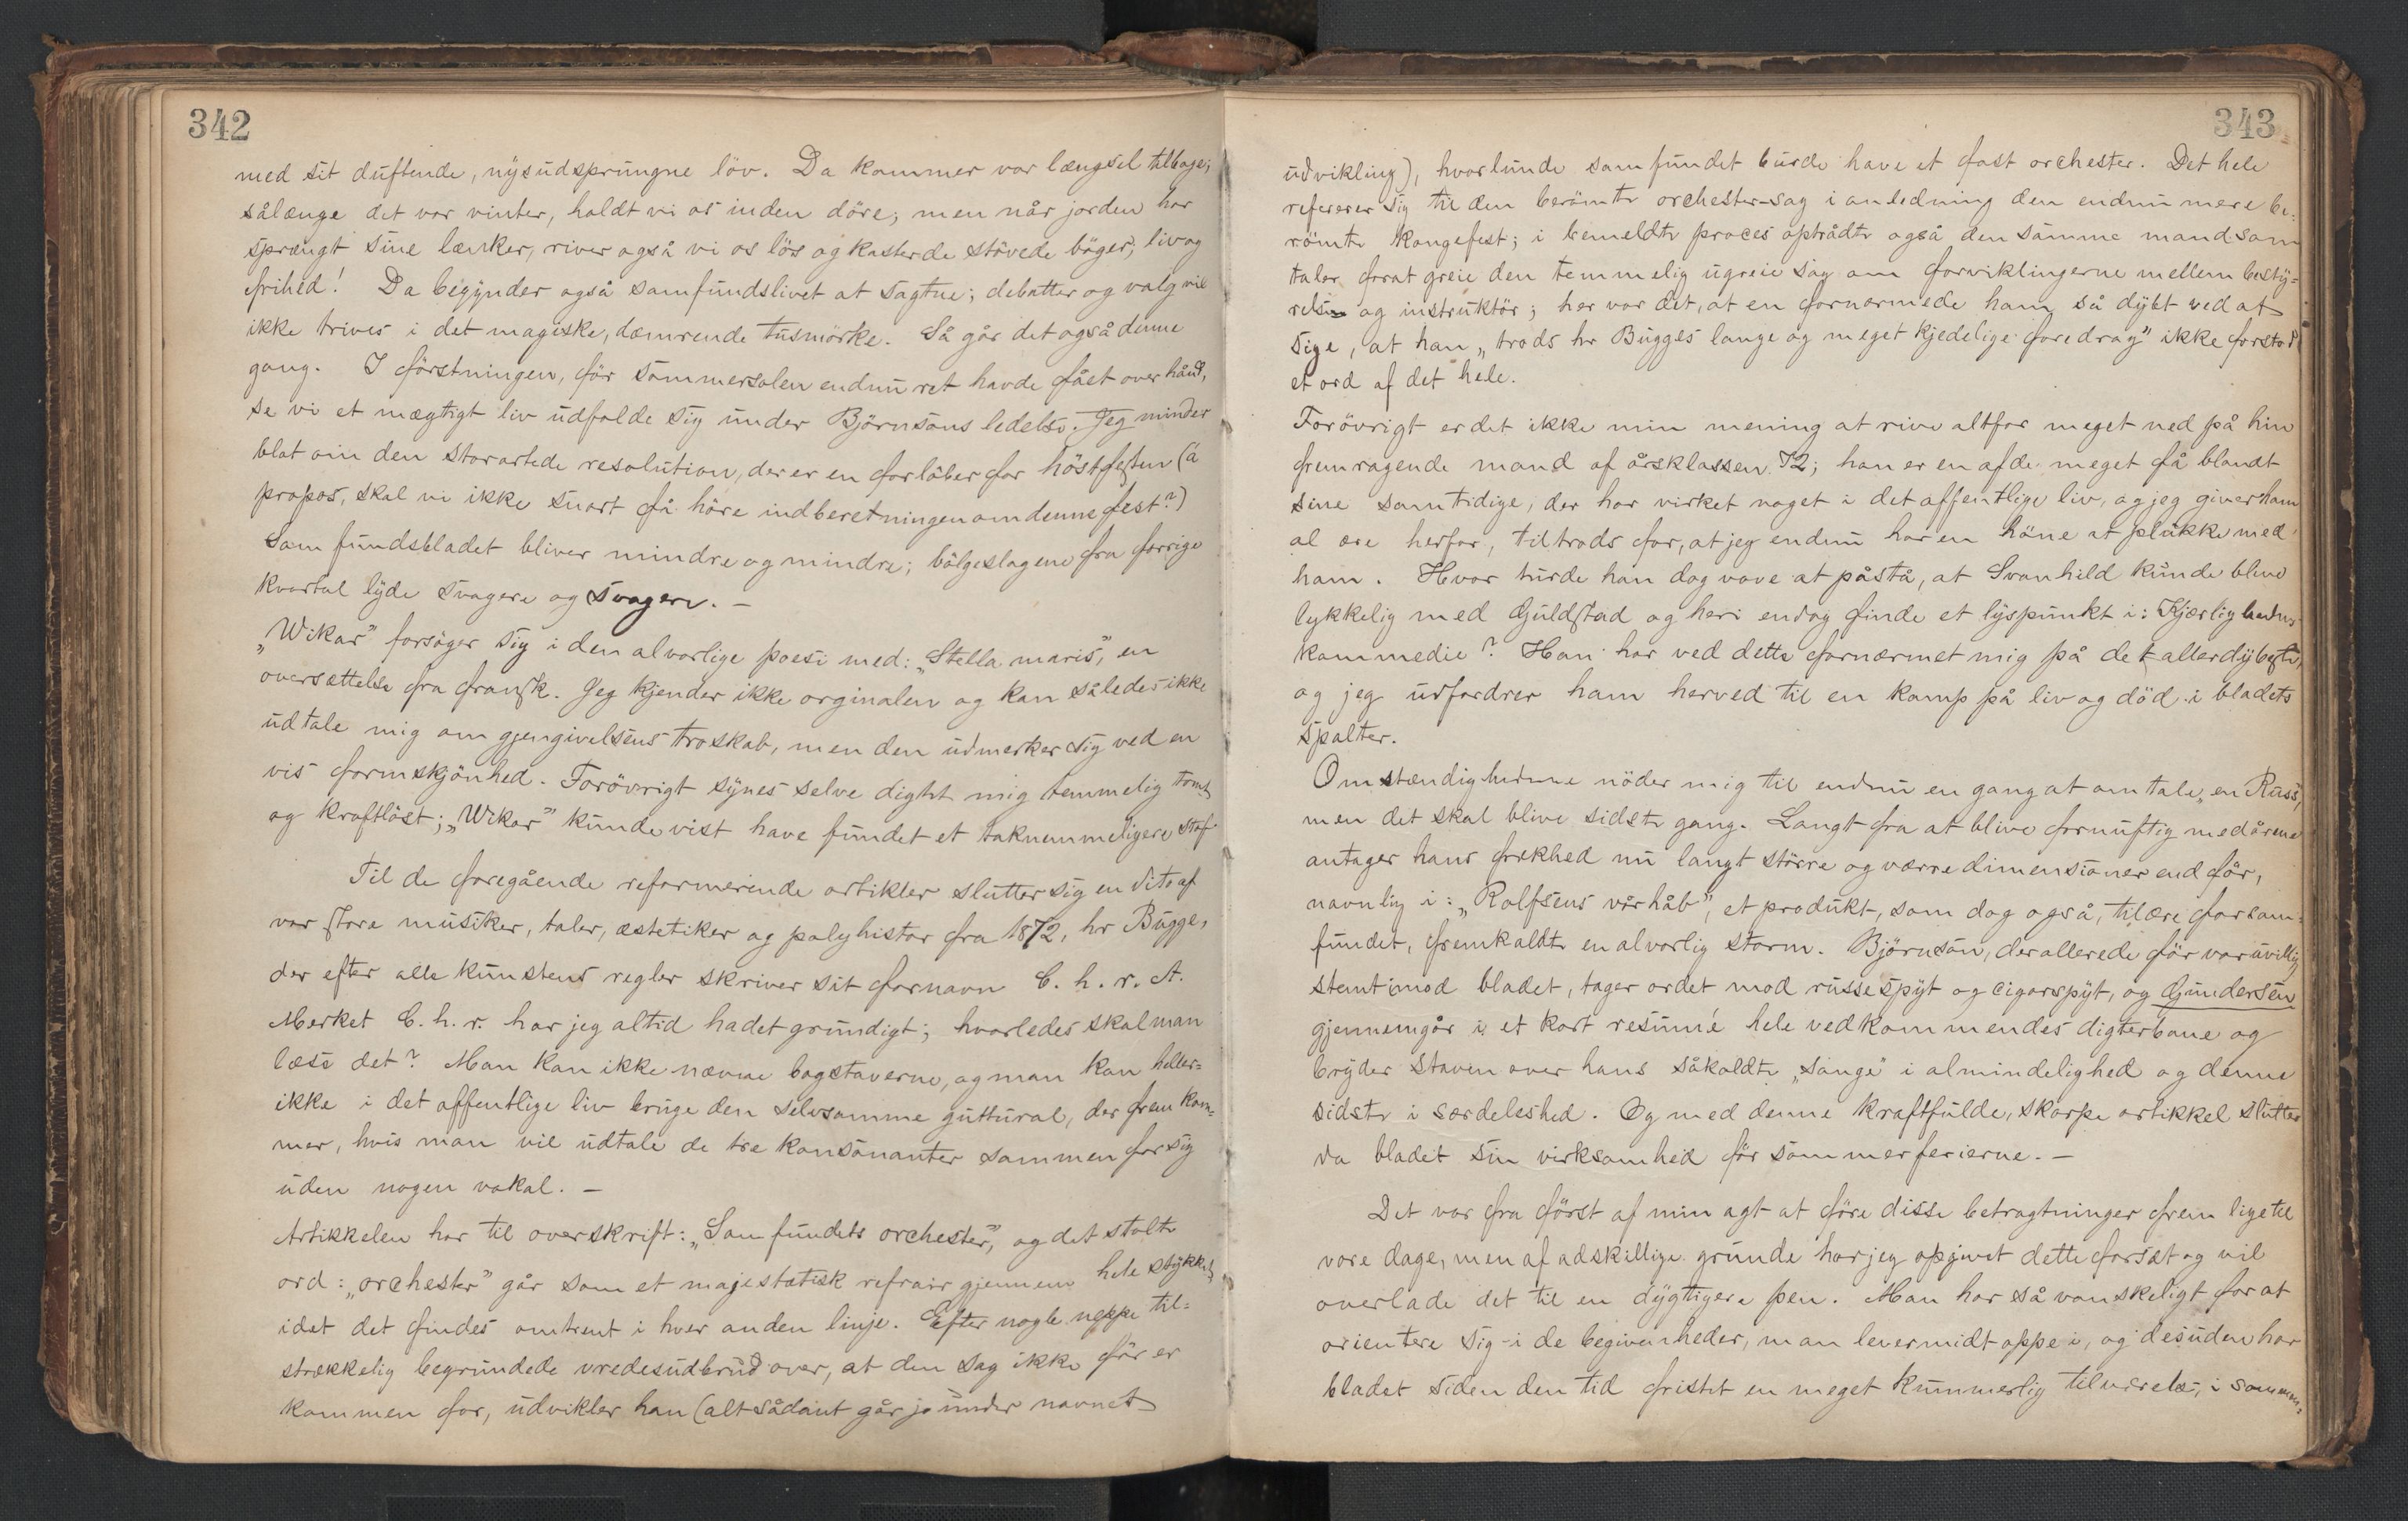 342
med sit duftende, nysudsprungne löv. Da kommer vor længsel tilbage;
sålænge det var vinter, holdt vi os inden döre; men når jorden har
sprængt sine lænker, river også vi os lös og kaster de stövede böger; liv og
frihed! Da begynder også samfundslivet at sagtne; debatter og valg vil
ikke trives i det magiske, dæmrende tusmörke. Så går det også denne
gang. I förstningen, för sommersolen endnu ret havde fået overhånd,
se vi et mægtigt liv udfolde sig under Björnsons ledelse. Jeg minder
blot om den storartede resolution, der er en forlöber for höstfesten (à
propos, skal vi ikke snart få höre indberetningen om denne fest?)
Samfundsbladet bliver mindre og mindre; bölgeslagene fra forrige
kvartal lyde svagere og svagere. —
„Wikar” forsöger sig i den alvorlige poesi med: „Stella maris”, en
oversættelse fra fransk. Jeg kjender ikke orginalen og kan således ikke
udtale mig om gjengivelsens troskab, men den udmerker sig ved en
vis formskjönhed. Forövrigt synes selve digtet mig temmelig tomt
og kraftlöst; „Wikar” kunde vist have fundet et taknemmeligere stof.
Til de foregående reformerende artikler slutter sig en dito af
vor store musiker, taler, æstetiker og polyhistor fra 1872, hr Bugge,
der efter alle kunstens regler skriver sit fornavn C. h. r. A.
Merket C. h. r. har jeg altid hadet grundigt; hvorledes skal man
læse det? Man kan ikke nævne bogstaverne, og man kan heller=
ikke i det offentlige liv bruge den selvsamme guttural, der frem kom=
mer, hvis man vil udtale de tre konsonanter sammen for sig
uden nogen vokal. —
Artikkelen har til overskrift: „Samfundets orchester”, og det stolte
ord: „orchester” går som et majestætisk refrain gjennem hele stykket,
idet det findes omtrent i hver anden linje. Efter nogle neppe til=
strækkelig begrundede vredesudbrud over, at den sag ikke för er
kommen for, udvikler han (alt sådant går jo under navnet
343
udvikling), hvorlunde samfundet burde have et fast orchester. Det hele
refererer sig til den berömte orchester-sag i anledning den endnu mere be=
römte kongefest; i bemeldte proces optrådte også den samme mand som
taler forat greie den temmelig ugreie sag om forviklingerne mellem besty=
relse og instruktör; her var det, at en fornærmede ham så dybt ved at
sige, at han „trods hr Bugges lange og meget kjedelige foredrag” ikke forstod
et ord af det hele.
Forövrigt er det ikke min mening at rive altfor meget ned på hin
fremragende mand af årsklassen 72; han er en af de meget få blandt
sine samtidige, der har virket noget i det offentlige liv, og jeg giver ham
al ære herfor, til trods for, at jeg endnu har en höne at plukke med
ham. Hvor turde han dog vove at påstå, at Svanhild kunde blive
lykkelig med Guldstad og heri endog finde et lyspunkt i: Kjærlighedens
kommedie? Han har ved dette fornærmet mig på det allerdybeste,
og jeg udfordrer ham herved til en kamp på liv og död i bladets
spalter.
Omstændighederne nöder mig til endnu en gang at omtale „en Russ”,
men det skal blive sidste gang. Langt fra at blive fornuftig med årene
antager hans frækhed nu langt större og værre dimensioner end för,
navnlig i: „Rolfsens vårhåb”, et produkt, som dog også, til ære for sam=
fundet, fremkaldte en alvorlig storm. Björnson, der allerede för var uvillig
stemt imod bladet, tager ordet mod russespyt og cigarspyt, og Gundersen
gjennemgår i et kort resumé hele vedkommendes digterbane og
bryder staven over hans såkaldte „sange” i almindelighed og denne
sidste i særdeleshed. Og med denne kraftfulde, skarpe artikkel slutter
da bladet sin virksomhed för sommerferierne. —
Det var fra först af min agt at före disse betragtninger frem lige til
vore dage, men af adskillige grunde har jeg opgivet dette forsæt og vil
overlade det til en dygtigere pen. Man har så vanskeligt for at
orientere sig i de begivenheder, man lever midt oppe i, og desuden har
bladet siden den tid fristet en meget kummerlig tilværelse, i sammen=